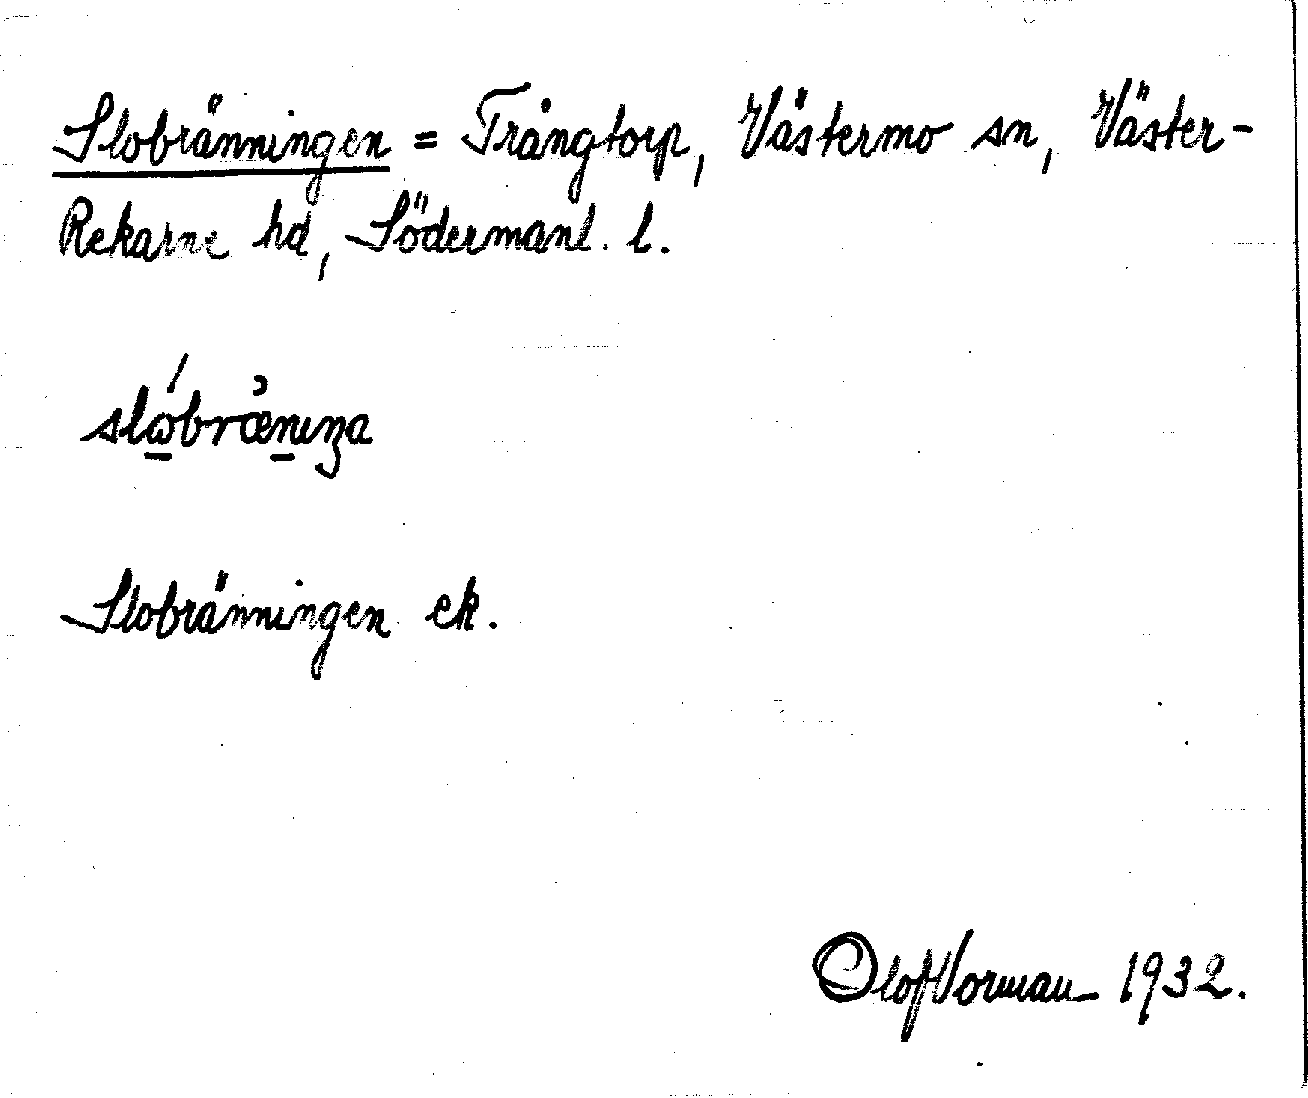 Slobränningen = Trångtorp, Västermo sn, Väster-
Rekarne hd, Södermanl. l.
slώ̱bræ̉ṉıŋa
Slobränningen ek.
Olof Norman 1932.